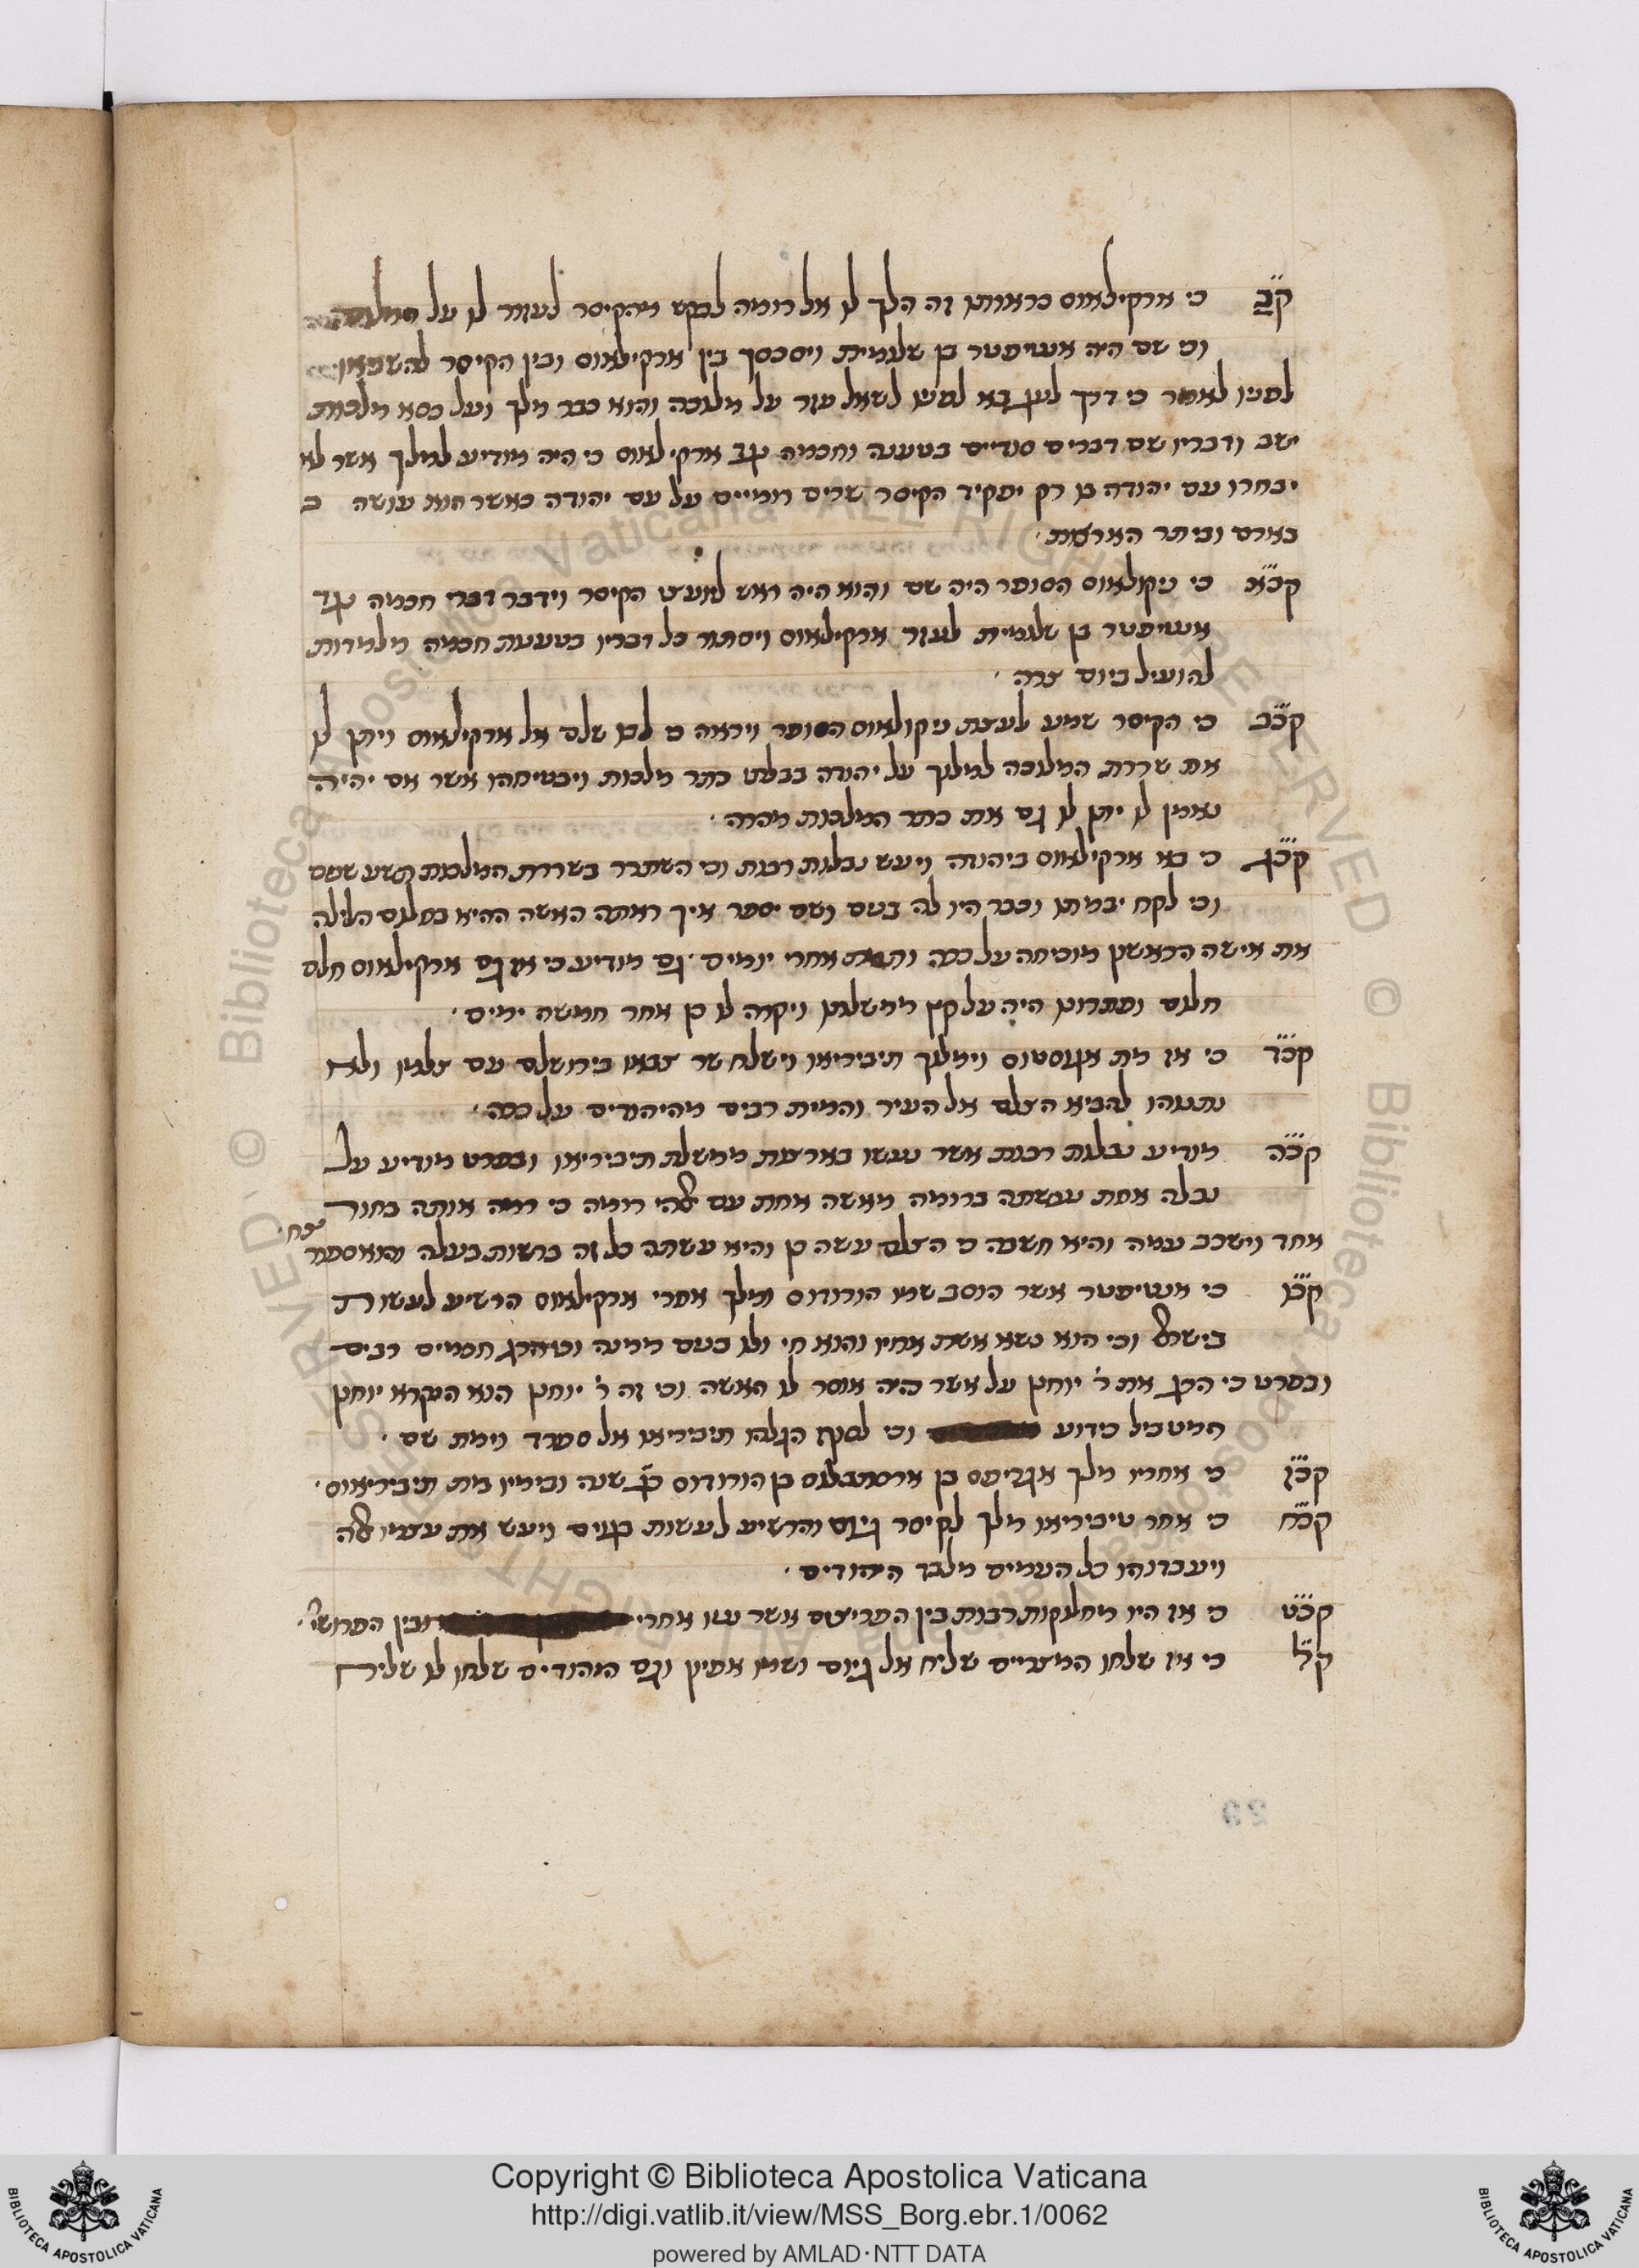 קכ כי ארקילאוס כראותו זה הלך לו אל רומה לבקש מהקיסר לעזור לו על
וכי שם היה אנטיפטר בן שלומית ויסכסך בין ארקילאוס ובין הקיסר
לפניו לאמר כי דרך לעג בא לפניו לשאל עזר על מלוכה והוא כבר מלך ועל כסא מלכות
ישב ודבריו שם דברים בטענה וחכמה נגד ארקילאוס כי היה מודיע למלך אשר לא
יבחרו עם יהודה בו רק יפקיד הקיסר שרים רומיים על עם יהודה כאשר הוא עושה
בארם וביתר הארצות
קכא כי ניקולאוס הסופר היה שם והוא היה ראש ליועצי הקיסר וידבר דברי חכמה נגד
אנטיפטר בן שלומית לעזר ארקילאוס ויסתור כל דבריו בטענות חכמה מלמדות
להועיל ביום צרה
קכב כי הקיסר שמע לעצת ניקולאוס הסופר ויראה כי לבו שלם אל ארקילאוס ויתן לו
את שררת המלוכה למלוך על יהודה בבלתי כתר מלכות ויבטיחהו אשר אם יהיה
נאמן לו יתן לו גם את כתר המלכות מהרה
קכג כי בא ארקילאוס ביהודה ויעש נבלות רבות וכי השתרר בשררת המלכות תשע שנים
וכי לקח יבמתו וכבר היו לה בנים ושם יספר איך ראתה האשה ההיא בחלום הלילה
את אישה הראשון מוכיחה על ככה ותמת אחרי יומים גם מודיע כי אז גם ארקילאוס חלם
חלום ופתרונו היה על קץ ממשלתו ויקרה לו כן אחר חמשה ימים
קכד כי אז מת אגוסטוס וימלוך תיביריאו וישלח שר צבאו בירושלם עם צלמו ולא
נתנוהו להביא הצלם אל העיר והמית רבים מהיהודים על ככה
קכה מודיע נבלות רבות אשר נעשו בארצות ממשלת תיביריאו ובפרט מודיע על
נבלה אחת נעשתה ברומה מאשה אחת עם אלהי רומה כי רמה אותה בחור
אחד וישכב עמה והיא חשבה כי הצלם עשה כן והיא עשתה כל זה ברשות בעלה והוא ספור
קכו כי אנטיפטר אשר הוסב שמו הורודוס מלך אחרי ארקילאוס הרשיע לעשות
בישראל וכי הוא נשא אשת אחיו והוא חי ולו בנים ממנה וכי הרג חכמים רבים
ובפרט כי הרג את ר' יוחנן על אשר היה אוסר לו האשה וכי זה ר' יוחנן הוא הנקרא יוחנן
המטביל כידוע וכי לסוף הגלהו תיביריאו אל ספרד וימת שם
קכז כי אחריו מלך אגריפס בן ארסתבלוס בן הורודוס כג שנה ובימיו מת תיביריאוס
קכח כי אחר טיביריאו מלך לקיסר גיוס והרשיע לעשות בגוים ויעש את עצמו אלוה
ויעבדוהו כל העמים מלבד היהודים
קכט כי אז היו מחלוקות רבות בין הפריצים אשר נטו אחרי ובין הפרושי'
קל כי אז שלחו המצריים שליח אל גיוס ושמו אפיון וגם היהודים שלחו לו שליח